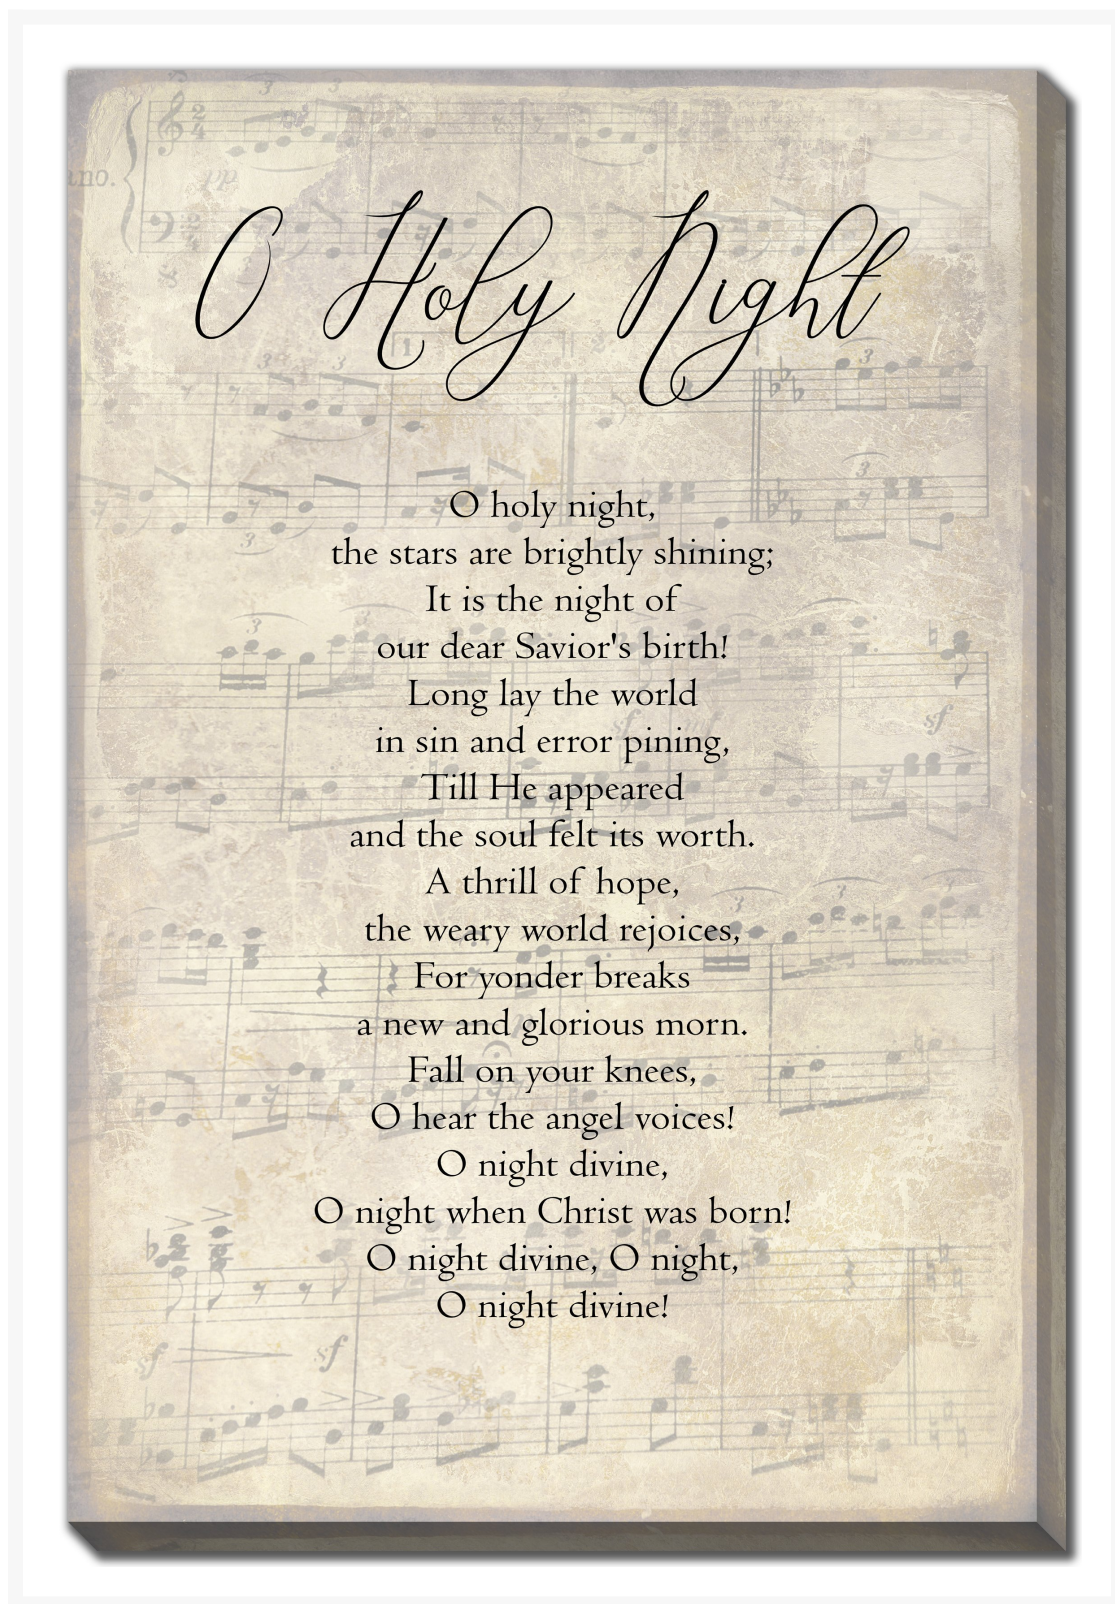 ano.
O Holy Night
O holy night,
the stars are brightly shining;
It is the night of
our dear Savior's birth!
Long lay the world
in sin and error pining,
Till He appeared
and the soul felt its worth.
A thrill of hope,
the weary world rejoices,
For yonder breaks
a new and glorious morn.
Fall on your knees,
O hear the angel voices!
O night divine,
O night when Christ was born!
O night divine, O night,
O night divine!